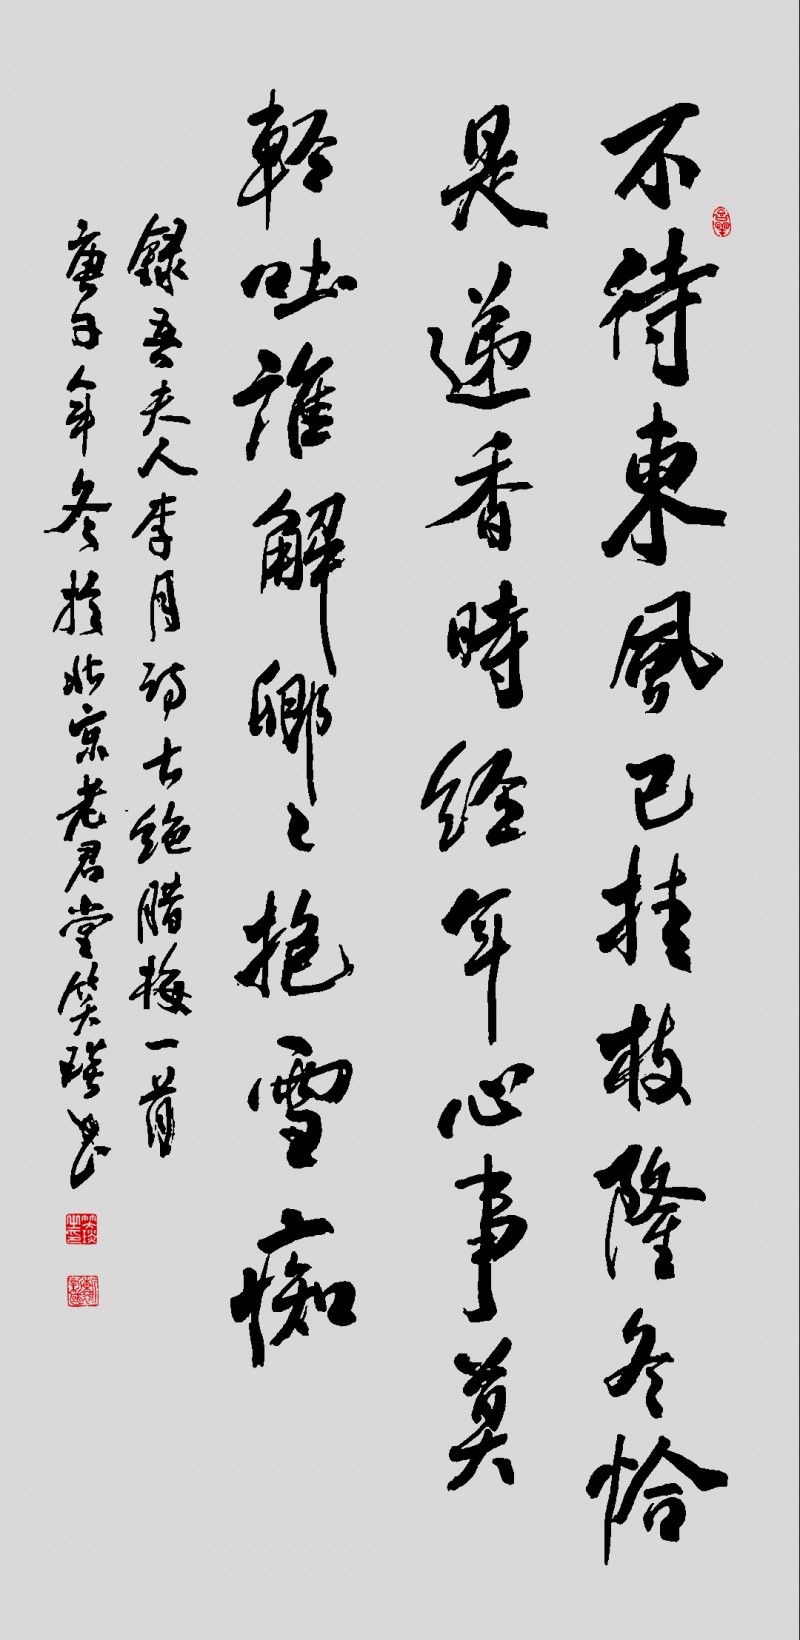 不待東風已挂枝隆冬恰
是递香時經年心事莫
輕吐誰解卿々抱雪痴
錄吾夫人李月詩七絕腊梅一首
庚子年冬於北京老君堂笑書